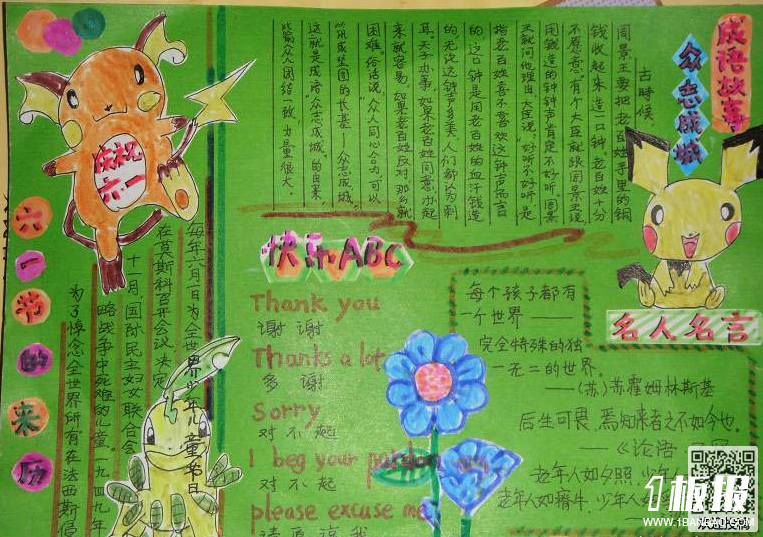 成语故事
众志成城
古時候，
周景王要把老百姓手里的铜
钱收起来，造一口钟，老百姓十分
不愿意，有个大臣就跟周景王说
用钱造的钟钟声肯定不好听，周景
王就问他理由，大臣说：好听不好听，是
指老百姓喜不喜欢这钟声而言
的，这口钟是用老百姓的血汗钱造
的，无论这钟声多美，人们都认为刺
耳。天子办事，如果老百姓同意，办起
来就容易，如果老百姓反对，那么就
困难。俗话说，众人同心合力，可以
筑成坚固的长
众志成城。
这就是成语“众志成城”的由来，
比喻众人团结一致，力量很大。
庆祝
六一
六一节的来历
为了悼念全世界所有在法西斯侵
略战争中死难的儿童，一九四九年
十一月，国际民主妇女联合会
在莫斯科召开会议，决定
每年六月一日为全世界少年儿童节日
快乐ABC
Thank you
谢谢
Thanks a lot
多谢
Sorry
对不起
I beg your pardon
对不起
please excuse me
请原谅我
名人名言
每个孩子都有
一个世界——
完全特殊的独
一无二的世界.
——(苏)苏霍姆林斯基
后生可畏,焉知来者之不如今也.
——《论语
老年人如夕照,少年人
老年人如瘠牛,少年人
1板报
WWW.1BANBAO.COM